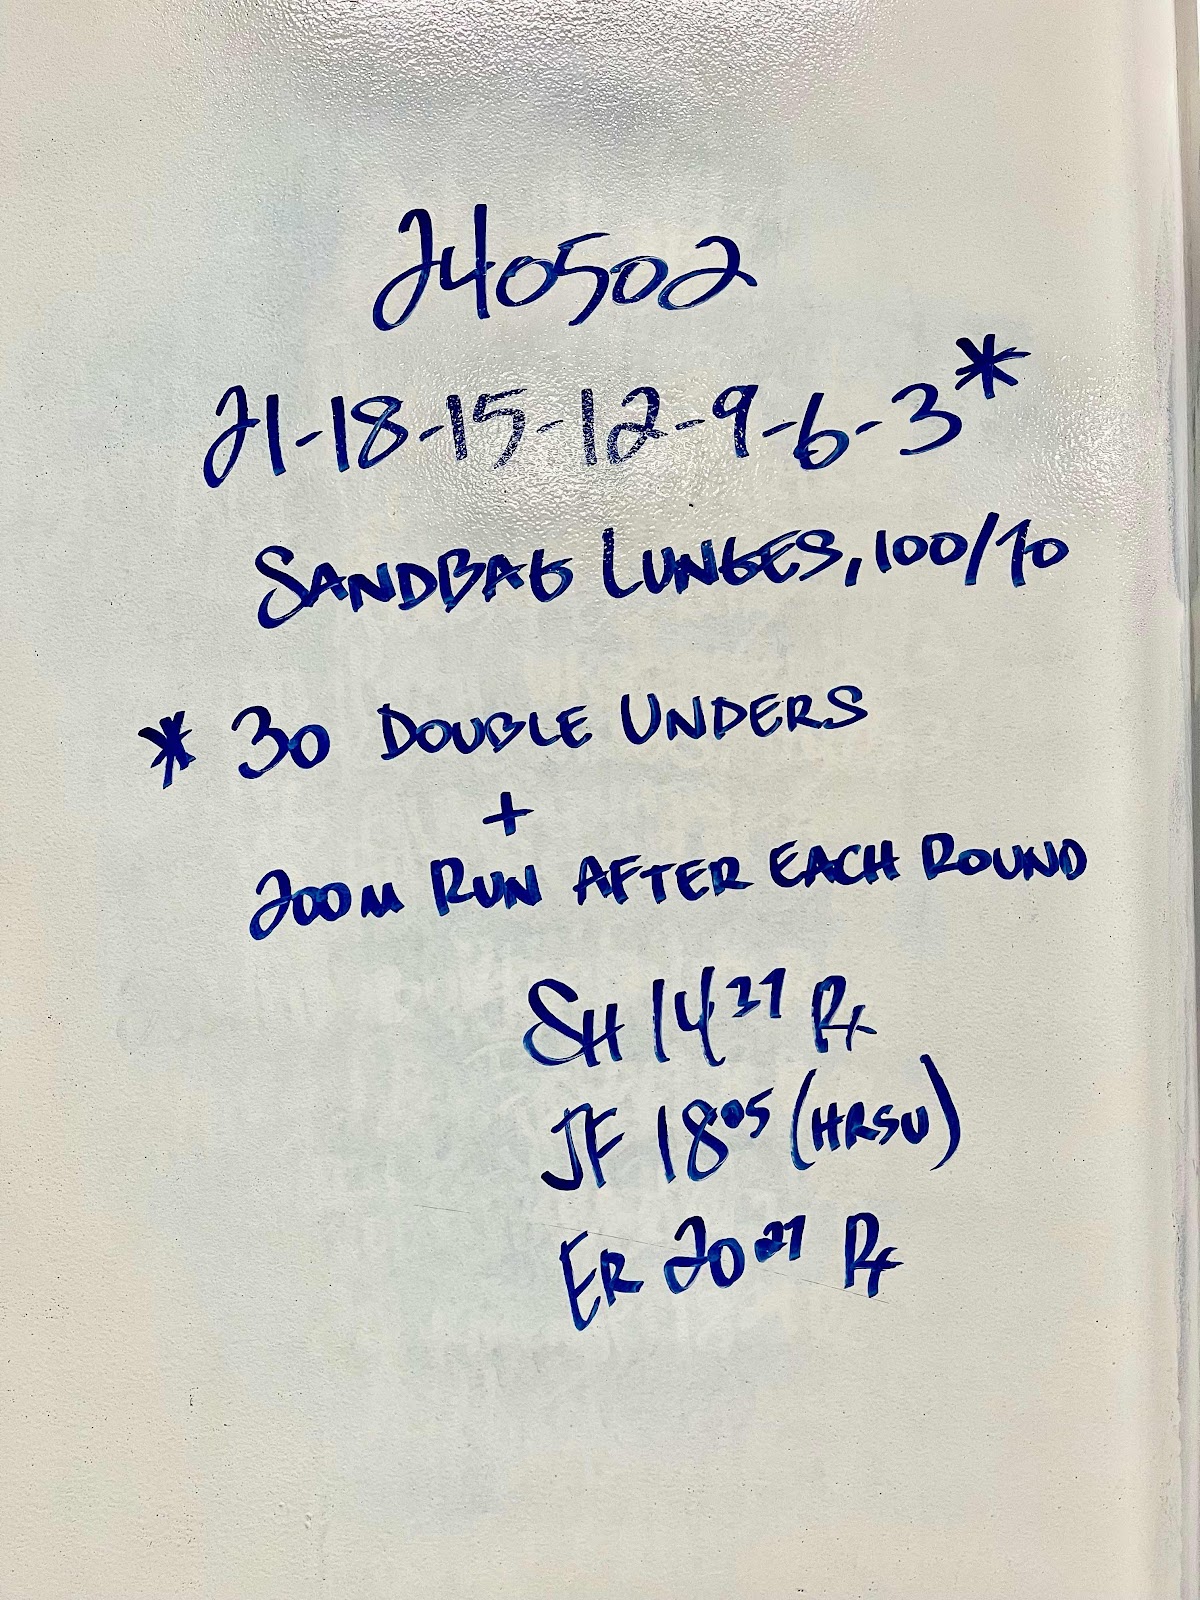 240502
21-18-15-12-9-6-3*
SANDBAG LUNGES, 100/70
* 30 DOUBLE UNDERS
+
200M RUN AFTER EACH ROUND
SH 14 37 Rx
JF 18 05 (HRSU)
ER 20 27 Rx